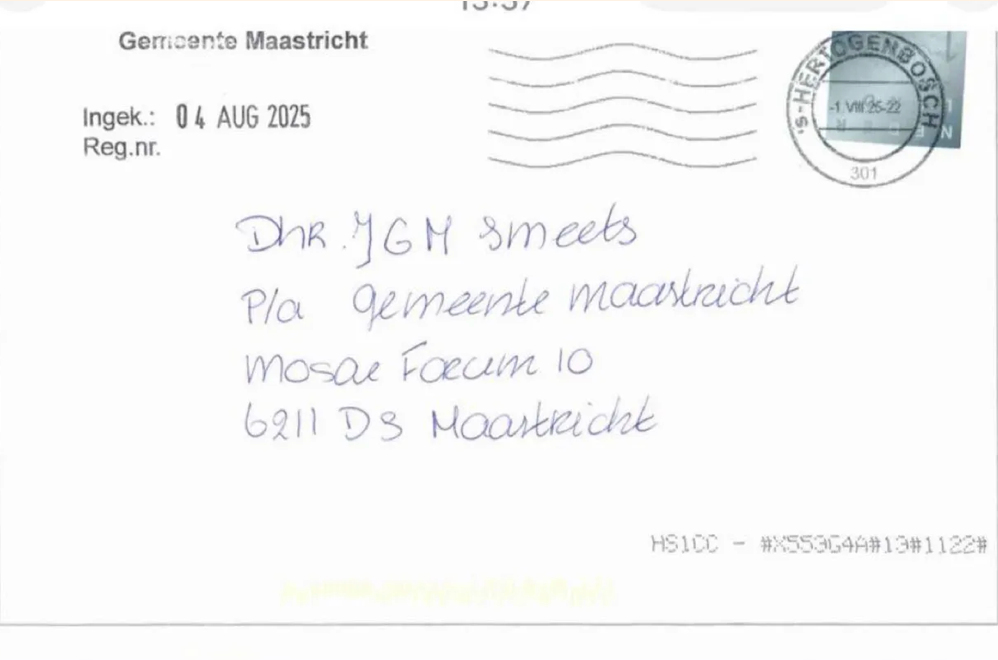 Gemeente Maastricht
Ingek.: 04 AUG 2025
Reg.nr.
's-HERTOGENBOSCH
-1.VIII 25-22
301
Dhr. JGM Smeets
P/a gemeente Maastricht
Mosae Forum 10
6211 DS Maastricht
HS1CC - #X553G4A#13#1122#